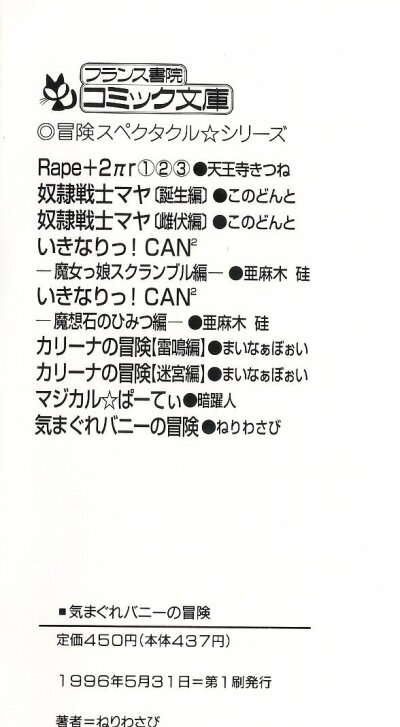 フランス書院
コミック文庫
◎冒険スペクタクル☆シリーズ
Rape+2πr①②③●天王寺きつね
奴隷戦士マヤ〔誕生編〕●このどんと
奴隷戦士マヤ〔雌伏編〕●このどんと
いきなりっ！CAN²
―魔女っ娘スクランブル編―●亜麻木 硅
いきなりっ！CAN²
―魔想石のひみつ編―●亜麻木 硅
カリーナの冒険【雷鳴編】●まいなぁぼぉい
カリーナの冒険【迷宮編】●まいなぁぼぉい
マジカル☆ぱーてぃ●暗躍人
気まぐれバニーの冒険●ねりわさび
■気まぐれバニーの冒険
定価450円(本体437円)
1996年5月31日＝第1刷発行
著者＝ねりわさび